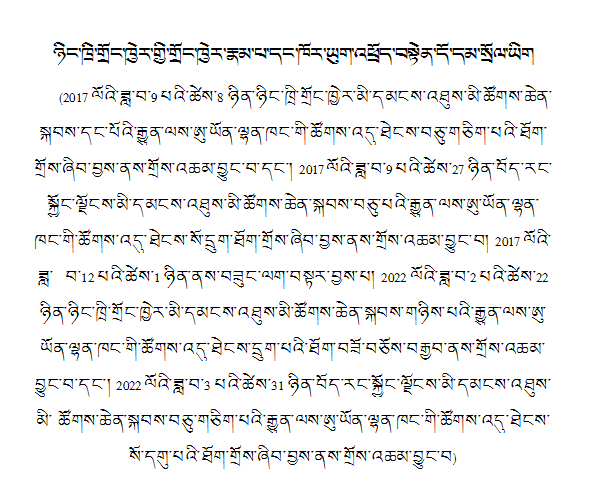 ཉིང་ཁྲི་གྲོང་ཁྱེར་གྱི་གྲོང་ཁྱེར་རྣམ་པ་དང་ཁོར་ཡུག་འཕྲོད་བསྟེན་དོ་དམ་སྲོལ་ཡིག
(2017 ལོའི་ཟླ་བ་9 པའི་ཚེས་8 ཉིན་ཉིང་ཁྲི་གྲོང་ཁྱེར་མི་དམངས་འཐུས་མི་ཚོགས་ཆེན་
སྐབས་དང་པོའི་རྒྱུན་ལས་ཨུ་ཡོན་ལྷན་ཁང་གི་ཚོགས་འདུ་ཐེངས་བཅུ་གཅིག་པའི་ཐོག་
གྲོས་ཞིབ་བྱས་ནས་གྲོས་འཆམ་བྱུང་བ་དང་། 2017 ལོའི་ཟླ་བ་9 པའི་ཚེས་27 ཉིན་བོད་རང་
སྐྱོང་ལྗོངས་མི་དམངས་འཐུས་མི་ཚོགས་ཆེན་སྐབས་བཅུ་པའི་རྒྱུན་ལས་ཨུ་ཡོན་ལྷན་
ཁང་གི་ཚོགས་འདུ་ཐེངས་སོ་དྲུག་ཐོག་གྲོས་ཞིབ་བྱས་ནས་གྲོས་འཆམ་བྱུང་བ། 2017 ལོའི་
ཟླ་ བ་12 པའི་ཚེས་1 ཉིན་ནས་བཟུང་ལག་བསྟར་བྱས་པ། 2022 ལོའི་ཟླ་བ་2 པའི་ཚེས་22
ཉིན་ཉིང་ཁྲི་གྲོང་ཁྱེར་མི་དམངས་འཐུས་མི་ཚོགས་ཆེན་སྐབས་གཉིས་པའི་རྒྱུན་ལས་ཨུ་
ཡོན་ལྷན་ཁང་གི་ཚོགས་འདུ་ཐེངས་དྲུག་པའི་ཐོག་བཟོ་བཅོས་བརྒྱབ་ནས་གྲོས་འཆམ་
བྱུང་བ་དང་། 2022 ལོའི་ཟླ་བ་3 པའི་ཚེས་31 ཉིན་བོད་རང་སྐྱོང་ལྗོངས་མི་དམངས་འཐུས་
མི་ ཚོགས་ཆེན་སྐབས་བཅུ་གཅིག་པའི་རྒྱུན་ལས་ཨུ་ཡོན་ལྷན་ཁང་གི་ཚོགས་འདུ་ཐེངས་
སོ་དགུ་པའི་ཐོག་གྲོས་ཞིབ་བྱས་ནས་གྲོས་འཆམ་བྱུང་བ)